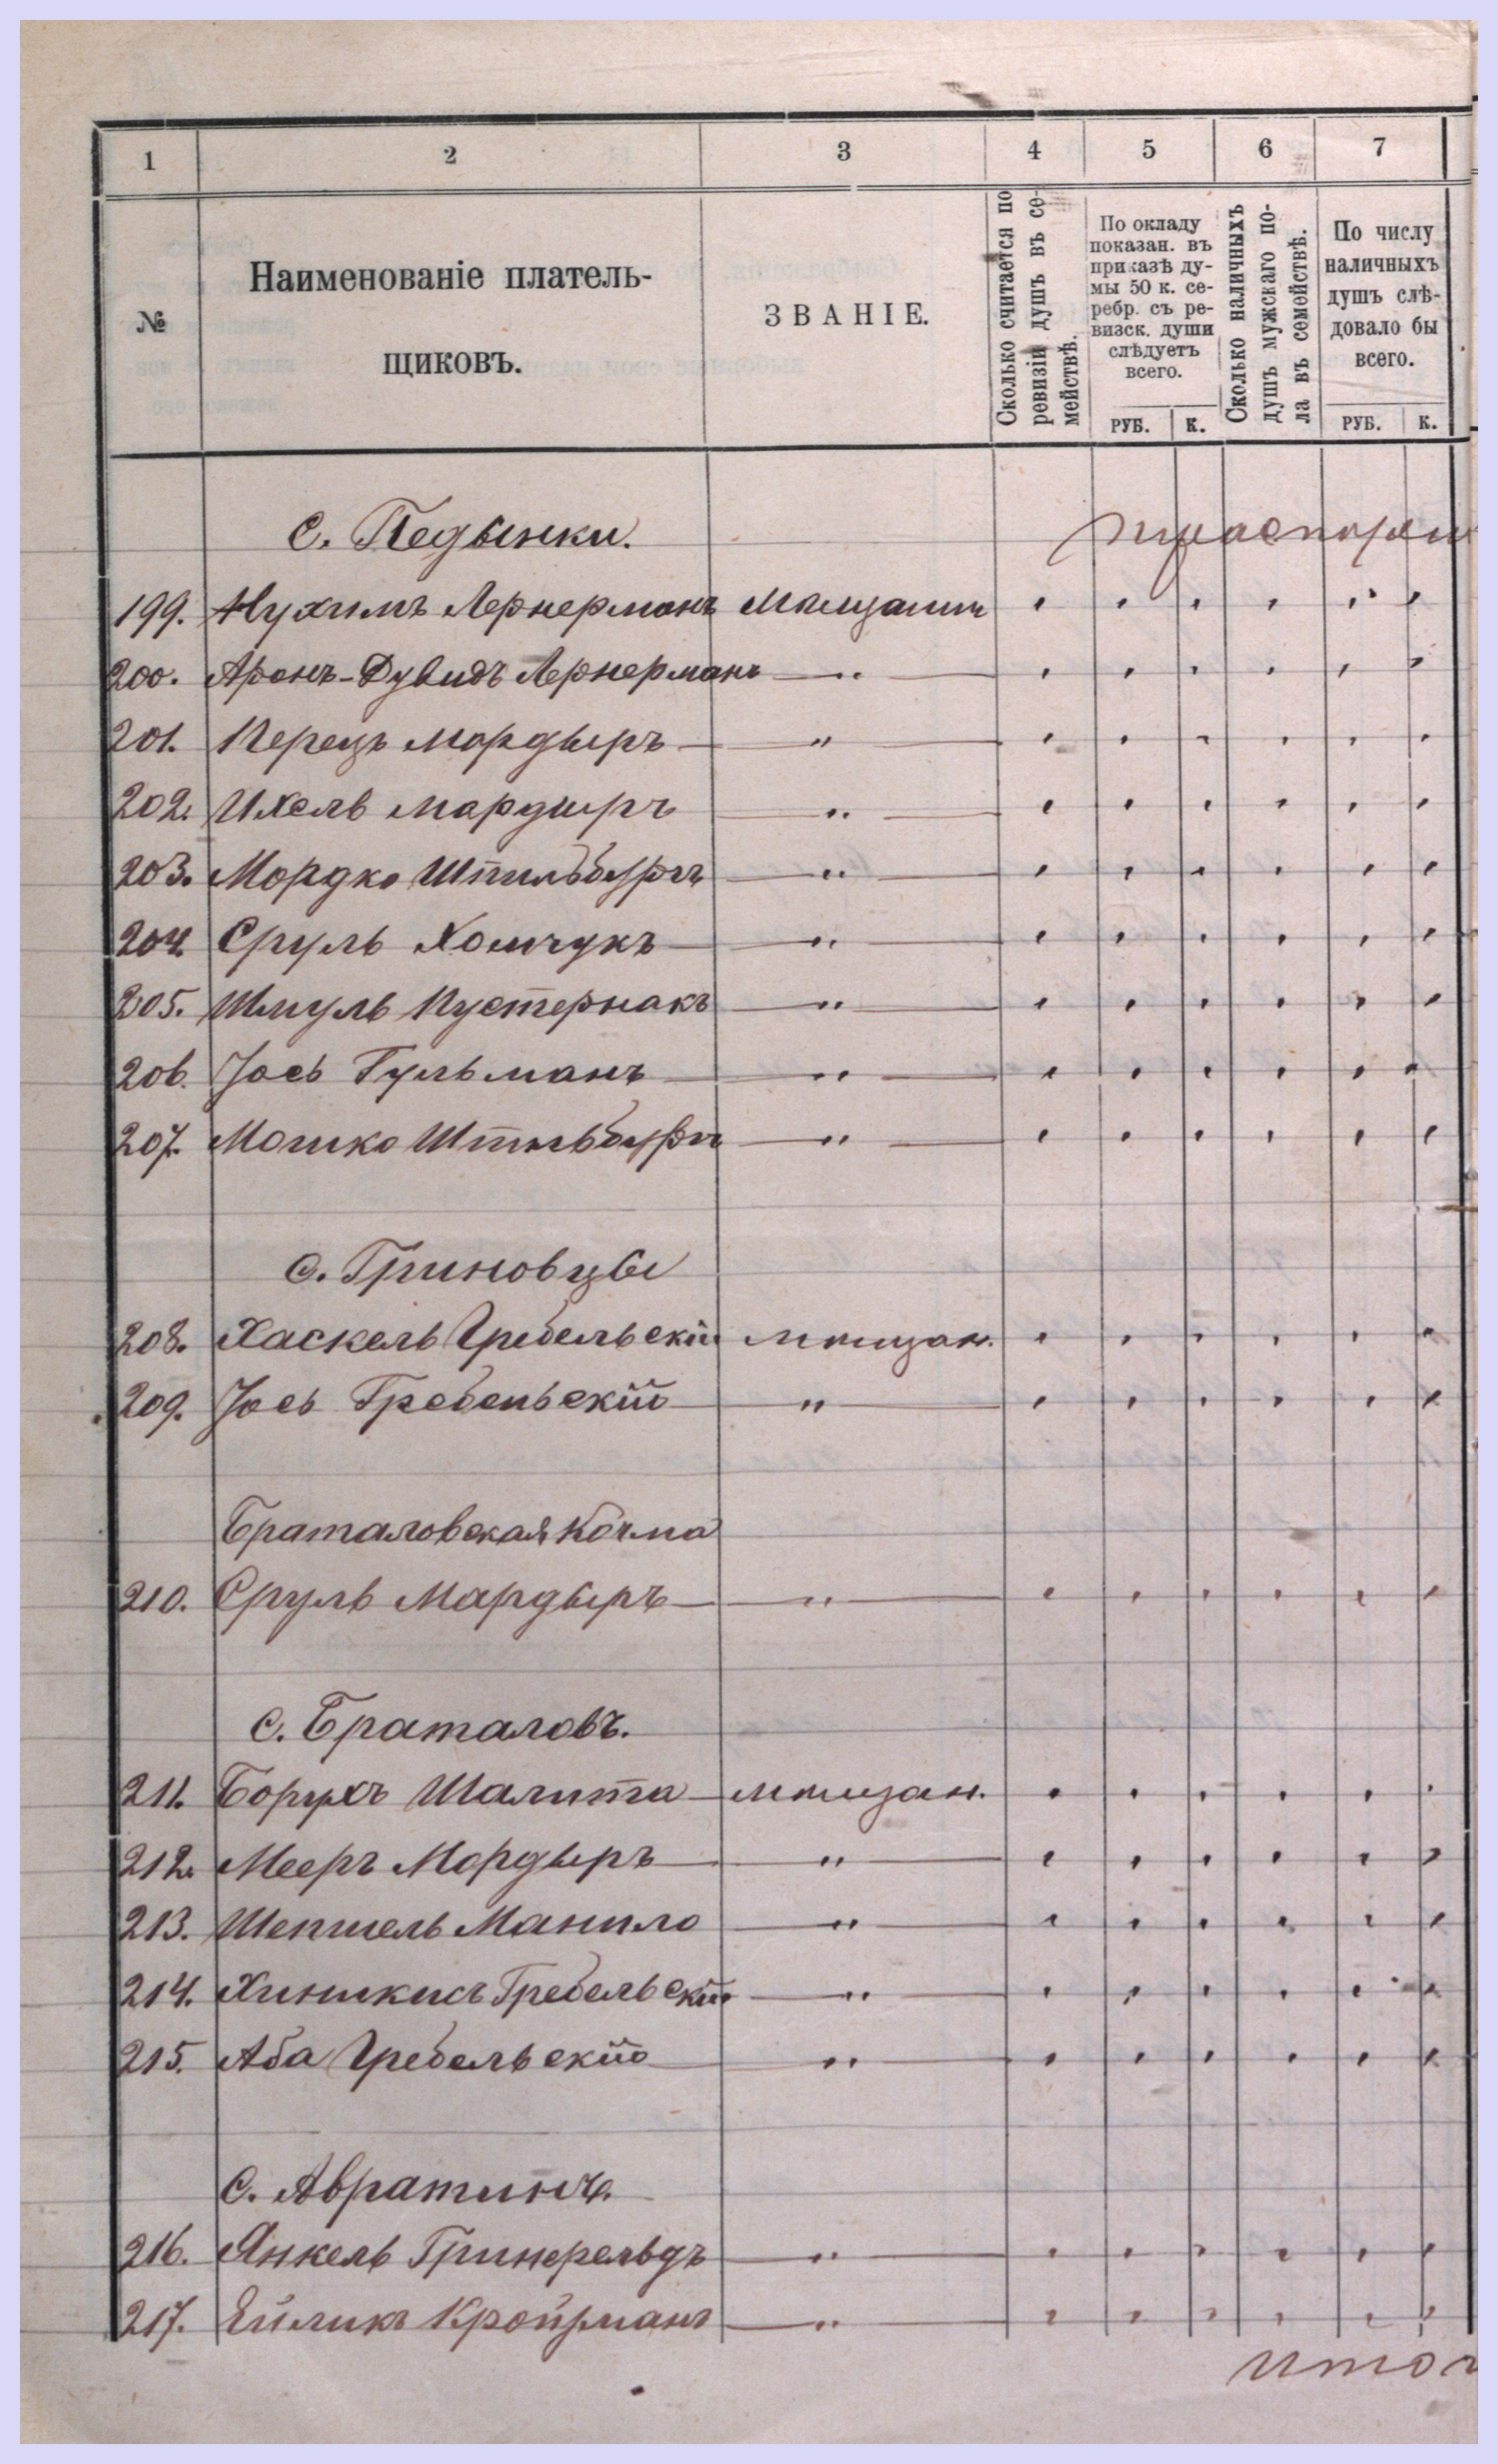 1 2 3 4 5 6 7
№
Наименованіе платель-
щиковъ.
ЗВАНІЕ.
Сколько считается по
ревизіи душъ въ се-
мействѣ.
По окладу
показан. въ
приказѣ ду-
мы 50 к. се-
ребр. съ ре-
визск. души
слѣдуетъ
всего.
РУБ. К.
Сколько наличныхъ
душъ мужскаго по-
ла въ семействѣ.
По числу
наличныхъ
душъ слѣ-
довало бы
всего.
РУБ. К.
с. Педынки.
199. Нухимъ Лернерманъ Мѣщанин
200. Аронъ-Дувидъ Лернерманъ — " —
201. Перецъ Мордыръ — " —
202. Ихель Мардыръ — " —
203. Мордко Штильбургъ — " —
204. Сруль Хомчукъ — " —
205. Шмуль Пустернакъ — " —
206. Іось Гульманъ — " —
207. Мошко — " —
с. Гриновцы
208. Хаскель Гребельскій мѣщан.
209. Іось Гребельскій — " —
Браталовская Кочма
210. Сруль Мардыръ — " —
с. Браталовъ.
211. Борухъ Шалита — мѣщан.
212. Мееръ Мордыръ — " —
213. Шепшель Манило — " —
214. Гребельскій — " —
215. Аба Гребельскій — " —
с. Авратинъ.
216. Янкель Гринфельдъ — " —
217. Кройфманъ — " —